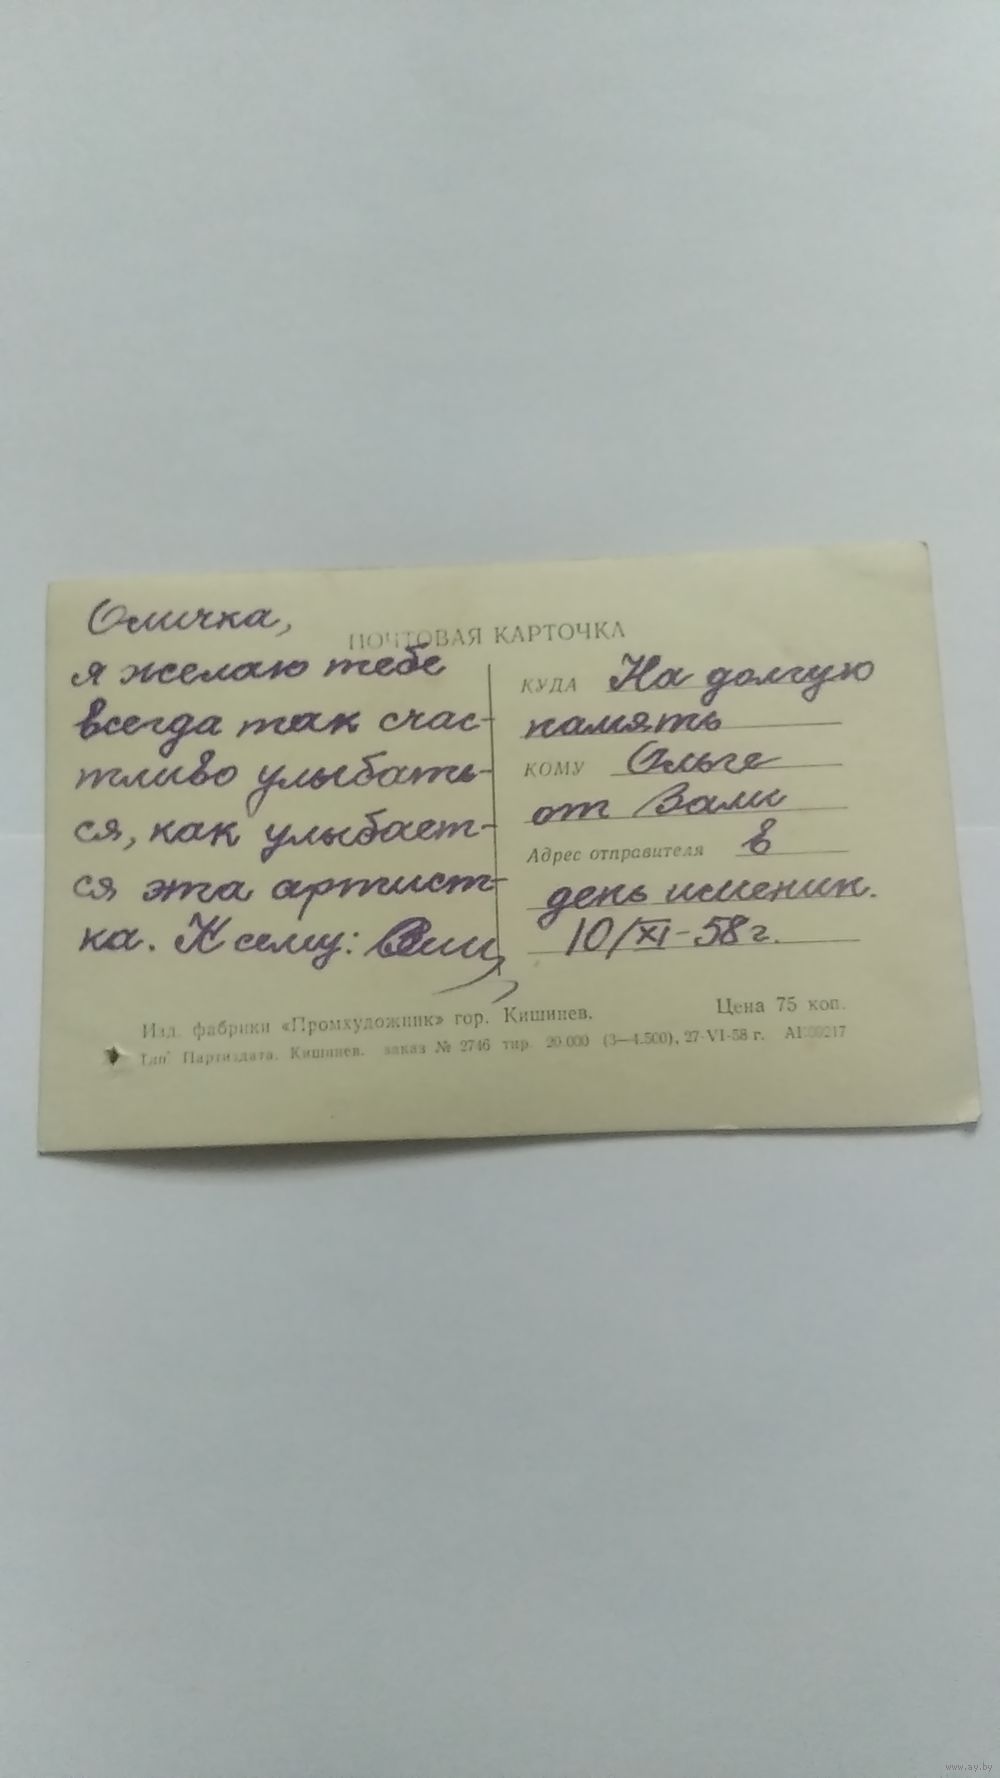 Оличка,
я желаю тебе
всегда так счас-
тливо улыбать-
ся, как улыбает-
ся эта артист-
ка. К сему:
ПОЧТОВАЯ КАРТОЧКА
КУДА На долгую
память
КОМУ Ольге
от Вали
Адрес отправителя в
день именин.
10/XI-58 г.
Изд. фабрики «Промхудожник» гор. Кишинев. Цена 75 коп.
Тип. Партиздата. Кишинев. заказ № 2746 тир. 20.000 (3—4.500), 27-VI-58 г.
www.ay.by